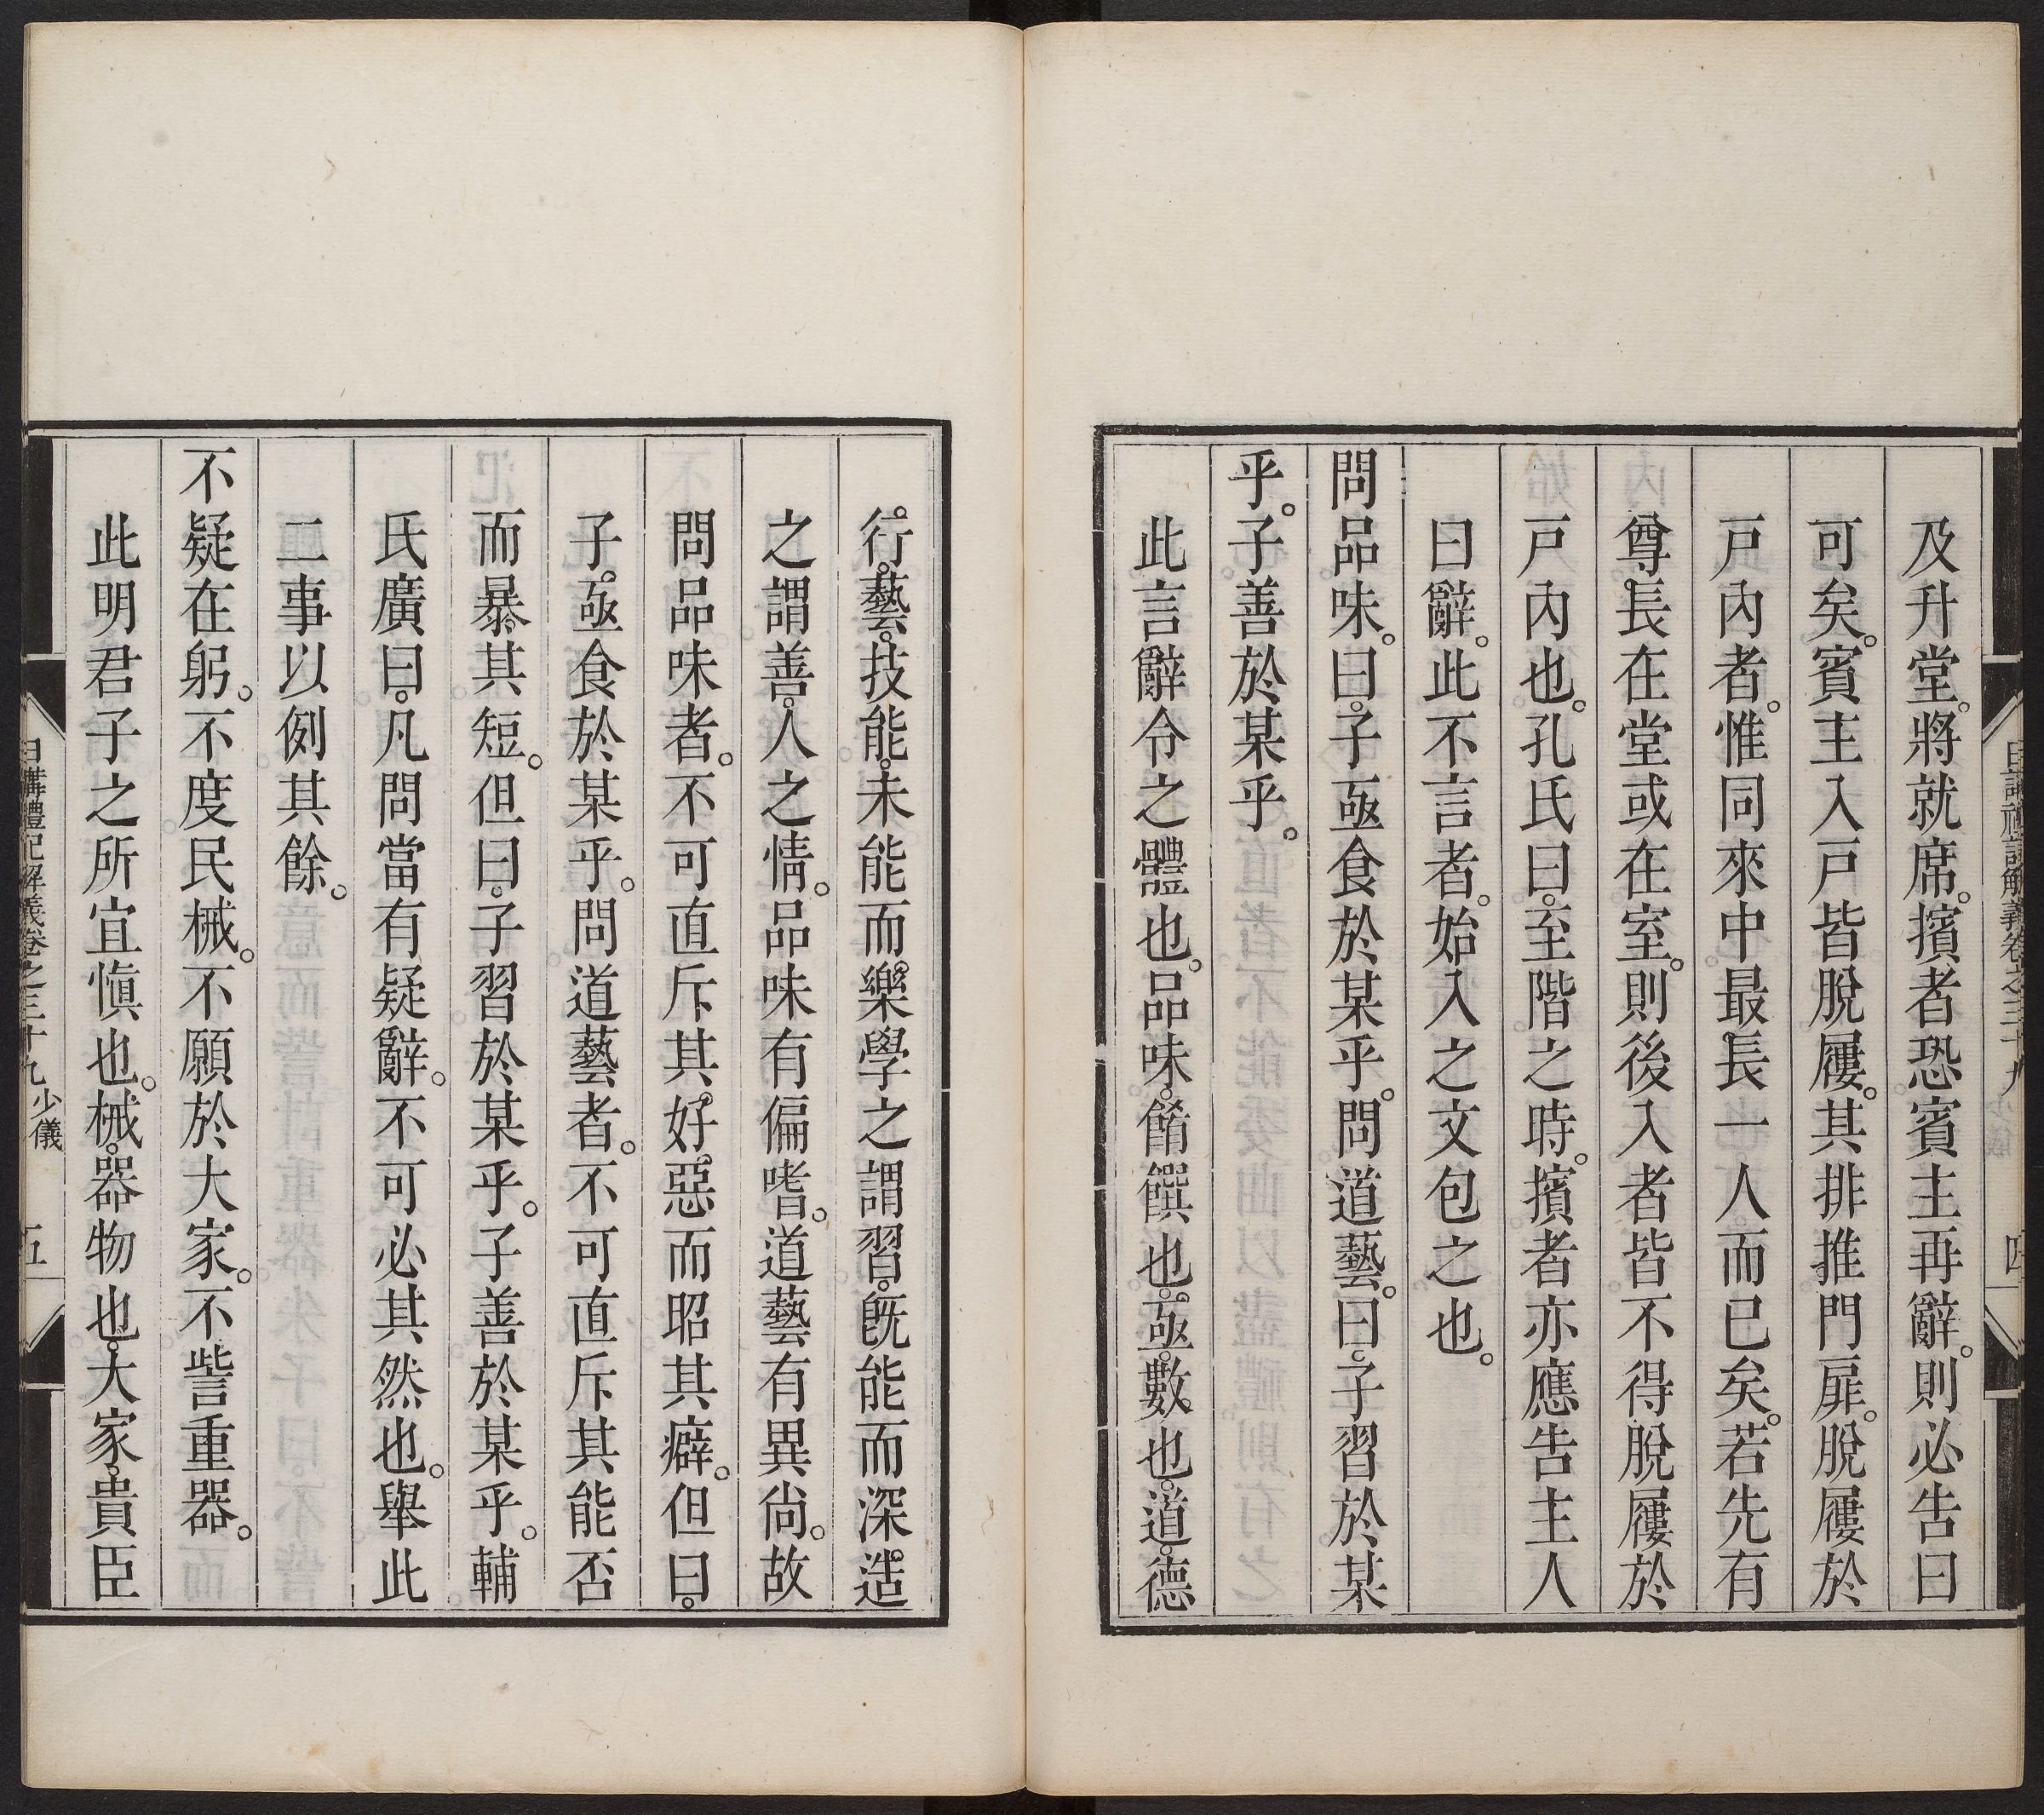 及升堂。將就席。擯者恐賓主再辭。則必告曰
可矣。賓主入戶皆脫屨。其排推門扉。脫屨於
戶內者。惟同來中最長一人而已矣。若先有
尊長在堂或在室。則後入者皆不得脫屨於
戶內也。孔氏曰。至階之時。擯者亦應告主人
曰辭。此不言者。始入之文包之也。
問品味。曰。子亟食於某乎。問道藝。曰。子習於某
乎。子善於某乎。
此言辭令之體也。品味。餚饌也。亟。數也。道。德
行。藝。技能。未能而樂學之謂習。旣能而深造
之謂善。人之情。品味有偏嗜。道藝有異尚。故
問品味者。不可直斥其好惡而昭其癖。但曰。
子。亟食於某乎。問道藝者。不可直斥其能否
而暴其短。但曰。子習於某乎。子善於某乎。輔
氏廣曰。凡問當有疑辭。不可必其然也。舉此
二事以例其餘。
不疑在躬。不度民械。不願於大家。不訾重器。
此明君子之所宜愼也。械。器物也。大家。貴臣
日講禮記解義卷之三十九 少儀 五